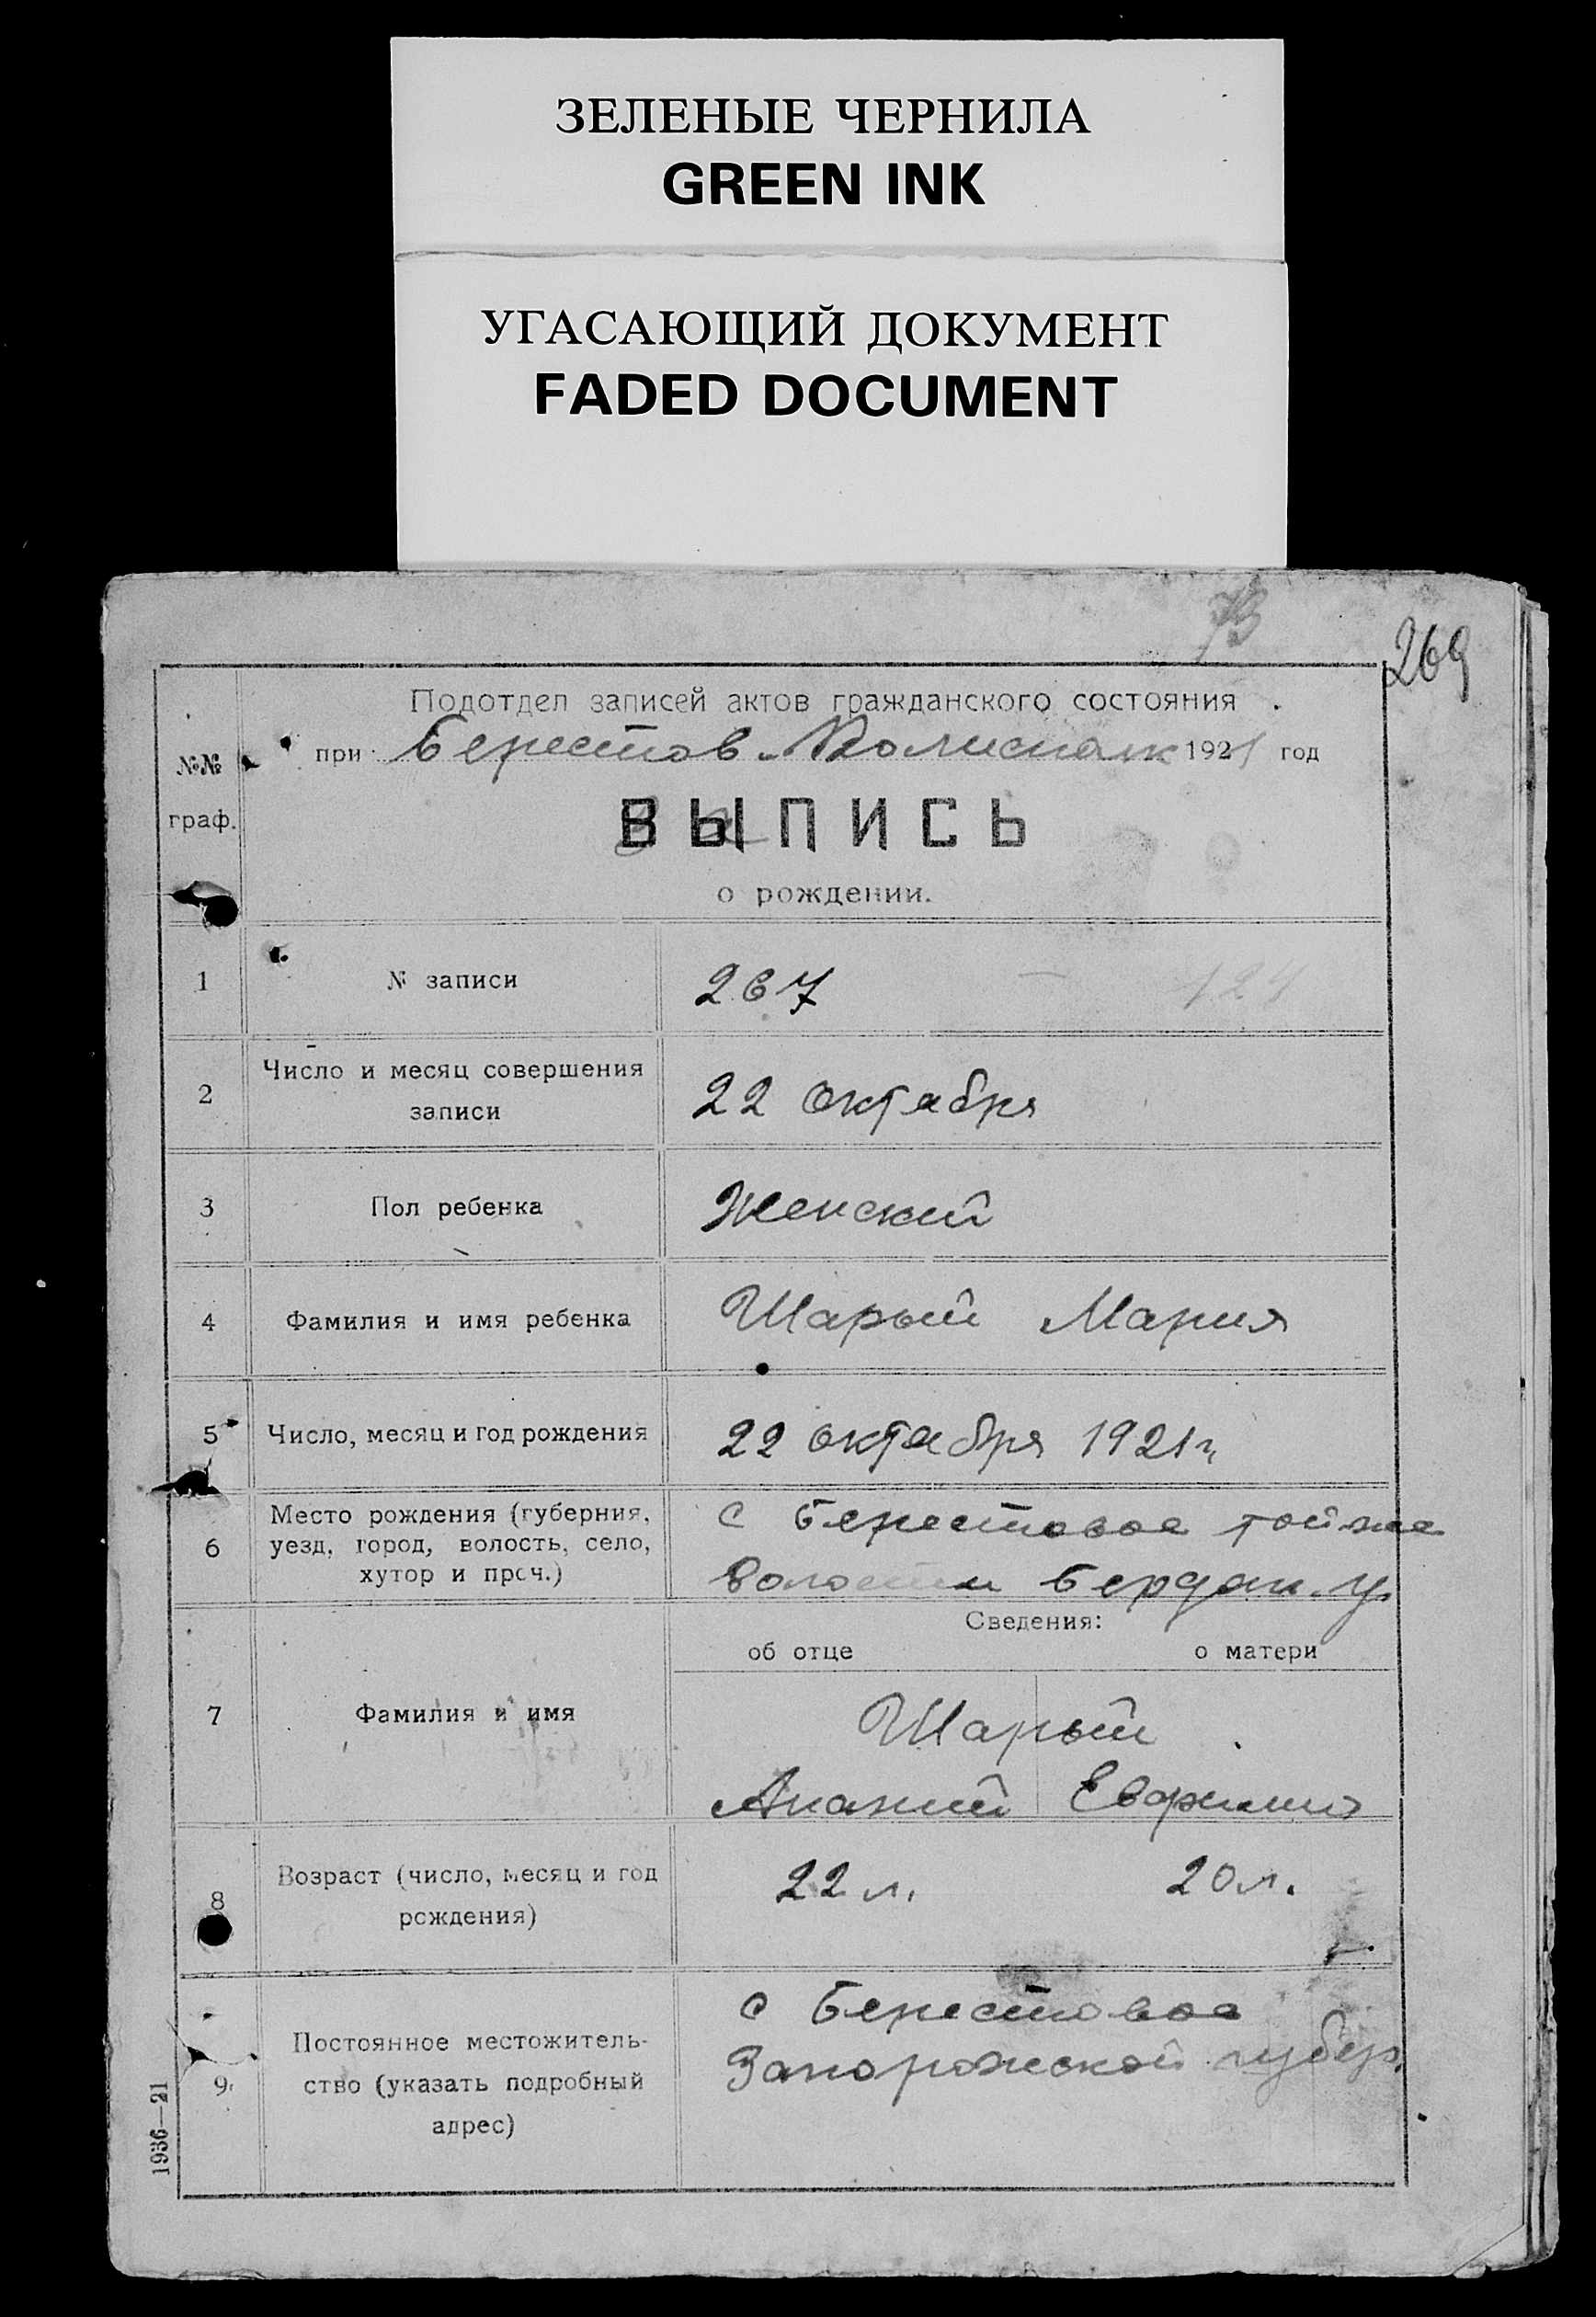 ЗЕЛЕНЫЕ ЧЕРНИЛА
GREEN INK
УГАСАЮЩИЙ ДОКУМЕНТ
FADED DOCUMENT
73
269
Подотдел записей актов гражданского состояния
при Берестов. Волисполк 1921 год
№№
граф.
ВЫПИСЬ
о рождении.
1 № записи 267 124
2 Число и месяц совершения
записи 22 октября
3 Пол ребенка Женский
4 Фамилия и имя ребенка Шарый Мария
5 Число, месяц и год рождения 22 октября 1921 г.
6 Место рождения (губерния,
уезд, город, волость, село,
хутор и проч.)
с Берестовое той же
волости Бердян. у.
Сведения:
об отце о матери
7 Фамилия и имя Шарый
Ананий Евфимия
8 Возраст (число, месяц и год
рождения) 22 л. 20 л.
9 Постоянное местожитель-
ство (указать подробный
адрес)
с Берестовое
Запорожской губер.
1936—21